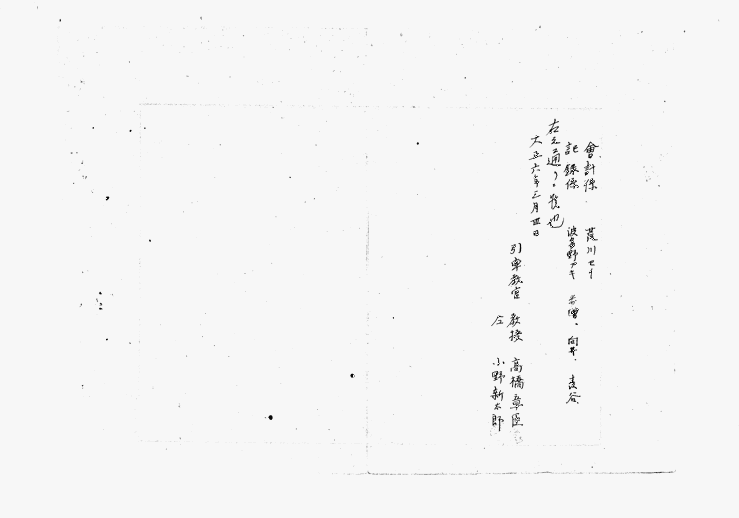 會計係 茂川セイ
記録係 波多野アキ 向井、喜谷
右之通リ 也
大正六年三月四日
引率教官 教授 高橋章臣
仝 小野新太郎